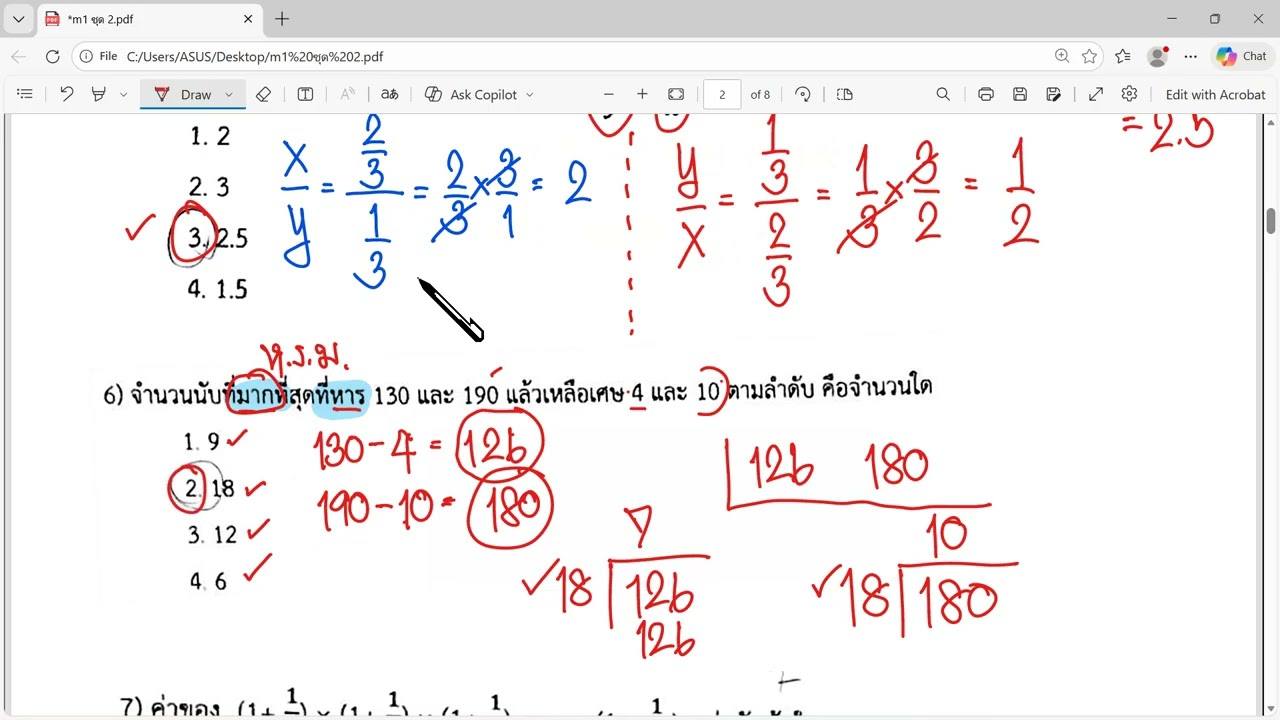 *m1 ชุด 2.pdf
File C:/Users/ASUS/Desktop/m1%20ชุด%202.pdf Chat
Draw Ask Copilot 2 of 8 Edit with Acrobat
= 2.5
1. 2
2. 3
3. 2.5
4. 1.5
x/y = 2/3 / 1/3 = 2/3 × 3/1 = 2
y/x = 1/3 / 2/3 = 1/3 × 3/2 = 1/2
ห.ร.ม.
6) จำนวนนับที่มากที่สุดที่หาร 130 และ 190 แล้วเหลือเศษ 4 และ 10 ตามลำดับ คือจำนวนใด
1. 9
2. 18
3. 12
4. 6
130 - 4 = 126
190 - 10 = 180
126 180
7
18 126
126
10
18 180
7) ค่าของ